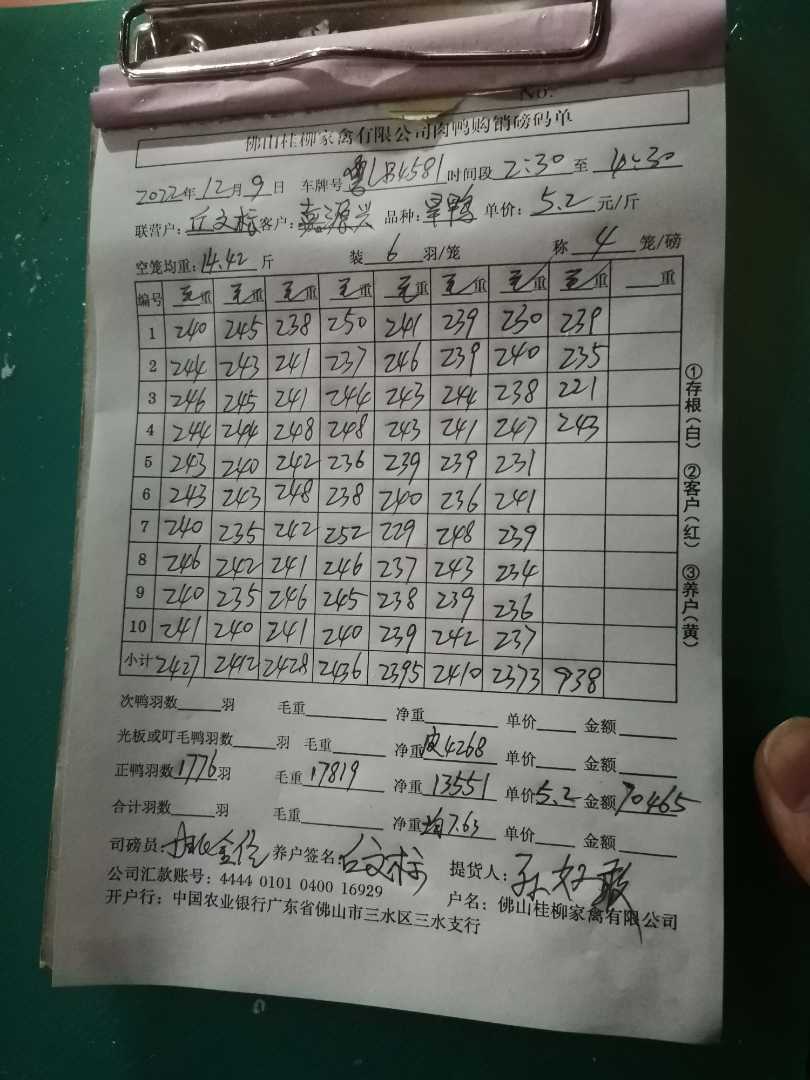 No.
佛山桂柳家禽有限公司肉鸭购销磅码单
2022年12月9日 车牌号 LB4581 时间段 2:30 至 4:30
联营户: 丘文标 客户: 嘉源兴 品种: 旱鸭 单价: 5.2 元/斤
空笼均重: 14.42 斤 装 6 羽/笼 称 4 笼/磅
编号 毛重 毛重 毛重 毛重 毛重 毛重 毛重 毛重 重
1 240 245 238 250 241 239 230 239
2 244 243 241 237 246 239 240 235
3 246 245 241 244 243 244 238 221
4 244 244 248 248 243 241 247 243
5 243 240 242 236 239 239 231
6 243 243 248 238 240 236 241
7 240 235 242 252 229 248 239
8 246 242 241 246 237 243 234
9 240 235 246 245 238 239 236
10 241 240 241 240 239 242 237
小计 2427 2412 2428 2436 2395 2410 2373 938
次鸭羽数 羽 毛重 净重 单价 金额
光板或叮毛鸭羽数 羽 毛重 净重 皮4268 单价 金额
正鸭羽数 1776 羽 毛重 17819 净重 13551 单价 5.2 金额 70465
合计羽数 羽 毛重 净重 均7.63 单价 金额
司磅员: 养户签名: 丘文标 提货人:
公司汇款账号: 4444 0101 0400 16929 户名: 佛山桂柳家禽有限公司
开户行: 中国农业银行广东省佛山市三水区三水支行
①存根(白) ②客户(红) ③养户(黄)